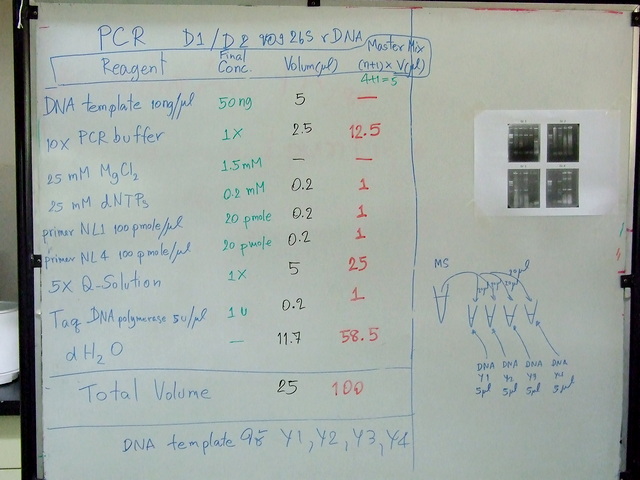 PCR D1/D2 ของ 26s rDNA
Reagent Final Conc. Volume(µl) Master Mix (n+1) x V(µl)
4+1=5
DNA template 10ng/µl 50ng 5 —
10X PCR buffer 1X 2.5 12.5
25 mM MgCl2 1.5mM — —
25 mM dNTPs 0.2 mM 0.2 1
primer NL1 100pmole/µl 20 pmole 0.2 1
primer NL4 100pmole/µl 20 pmole 0.2 1
5X Q-Solution 1X 5 25
Taq DNA polymerase 5u/µl 1u 0.2 1
dH2O — 11.7 58.5
Total Volume 25 100
DNA template คือ Y1, Y2, Y3, Y4
MS
20µl
DNA Y1 5µl
DNA Y2 5µl
DNA Y3 5µl
DNA Y4 5µl